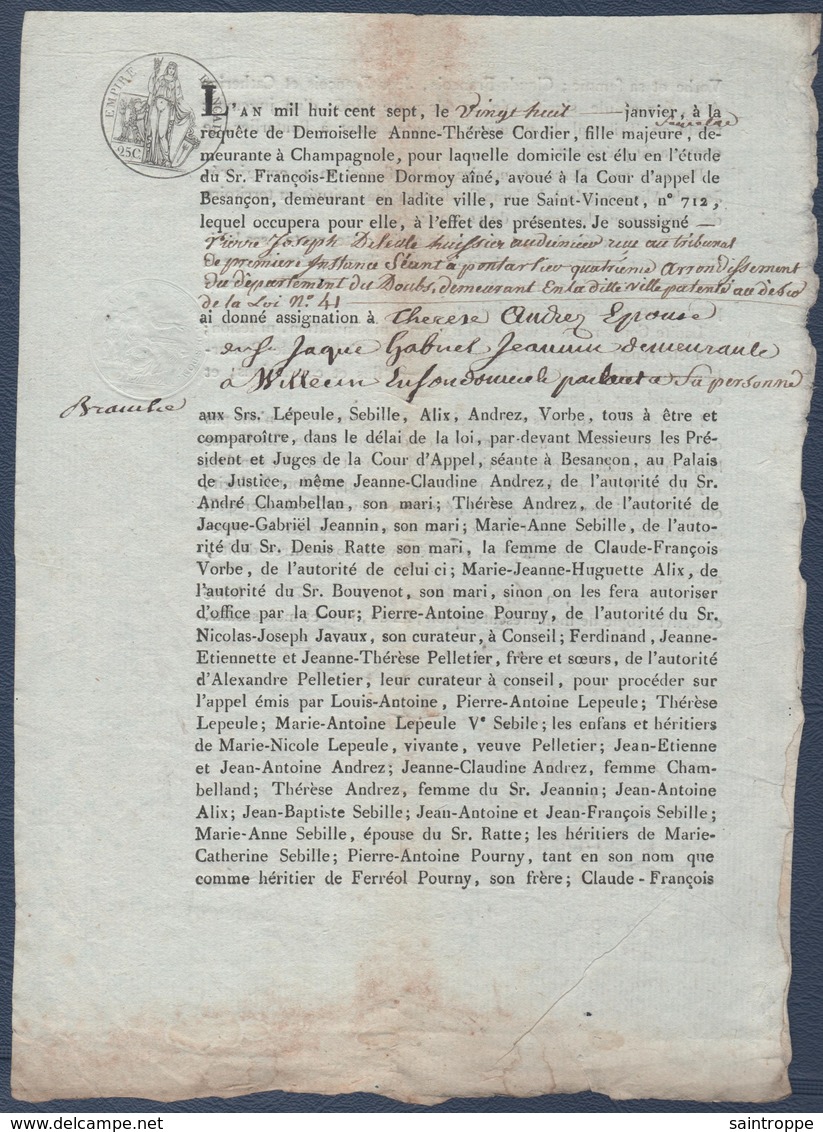 EMPIRE FRANÇAIS
25C.
L'AN mil huit cent sept, le Vingt huit janvier, à la
requête de Demoiselle Annne-Thérèse Cordier, fille majeure, de-
meurante à Champagnole, pour laquelle domicile est élu en l'étude
du Sr. François-Etienne Dormoy aîné, avoué à la Cour d'appel de
Besançon, demeurant en ladite ville, rue Saint-Vincent, n° 712,
lequel occupera pour elle, à l'effet des présentes. Je soussigné
Pierre Joseph huissier audiancier au tribunal
de premiere Instance Séant à pontarlier quatrieme arrondissement
du département du Doubs, demeurant En la ditte ville patenté
de la Loi N° 41
ai donné assignation à Therese Andrez Epouse
Jaque Gabriel Jeannin demeurante
à En son domicile parlant a Sa personne
aux Srs. Lépeule, Sebille, Alix, Andrez, Vorbe, tous à être et
comparoître, dans le délai de la loi, par-devant Messieurs les Pré-
sident et Juges de la Cour d'Appel, séante à Besançon, au Palais
de Justice, même Jeanne-Claudine Andrez, de l'autorité du Sr.
André Chambellan, son mari; Thérèse Andrez, de l'autorité de
Jacque-Gabriël Jeannin, son mari; Marie-Anne Sebille, de l'auto-
rité du Sr. Denis Ratte son mari, la femme de Claude-François
Vorbe, de l'autorité de celui ci; Marie-Jeanne-Huguette Alix, de
l'autorité du Sr. Bouvenot, son mari, sinon on les fera autoriser
d'office par la Cour; Pierre-Antoine Pourny, de l'autorité du Sr.
Nicolas-Joseph Javaux, son curateur, à Conseil; Ferdinand, Jeanne-
Etiennette et Jeanne-Thérèse Pelletier, frère et sœurs, de l'autorité
d'Alexandre Pelletier, leur curateur à conseil, pour procéder sur
l'appel émis par Louis-Antoine, Pierre-Antoine Lepeule; Thérèse
Lepeule; Marie-Antoine Lepeule Ve Sebile; les enfans et héritiers
de Marie-Nicole Lepeule, vivante, veuve Pelletier; Jean-Etienne
et Jean-Antoine Andrez; Jeanne-Claudine Andrez, femme Cham-
belland; Thérèse Andrez, femme du Sr. Jeannin; Jean-Antoine
Alix; Jean-Baptiste Sebille; Jean-Antoine et Jean-François Sebille;
Marie-Anne Sebille, épouse du Sr. Ratte; les héritiers de Marie-
Catherine Sebille; Pierre-Antoine Pourny, tant en son nom que
comme héritier de Ferréol Pourny, son frère; Claude-François
saintroppe